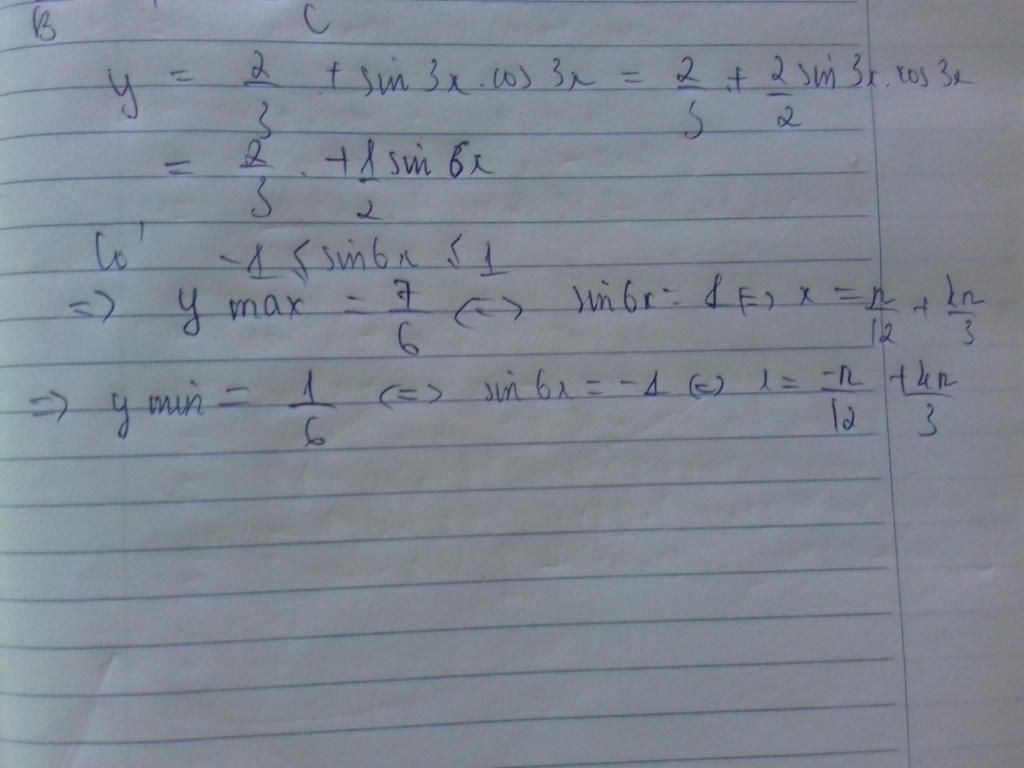 B C
y = 2/3 + sin 3x . cos 3x = 2/3 + 2/2 sin 3x . cos 3x
= 2/3 + 1/2 sin 6x
Có -1 ≤ sin6x ≤ 1
=> y max = 7/6 <=> sin6x = 1 <=> x = π/12 + kπ/3
=> y min = 1/6 <=> sin 6x = -1 <=> x = -π/12 + kπ/3